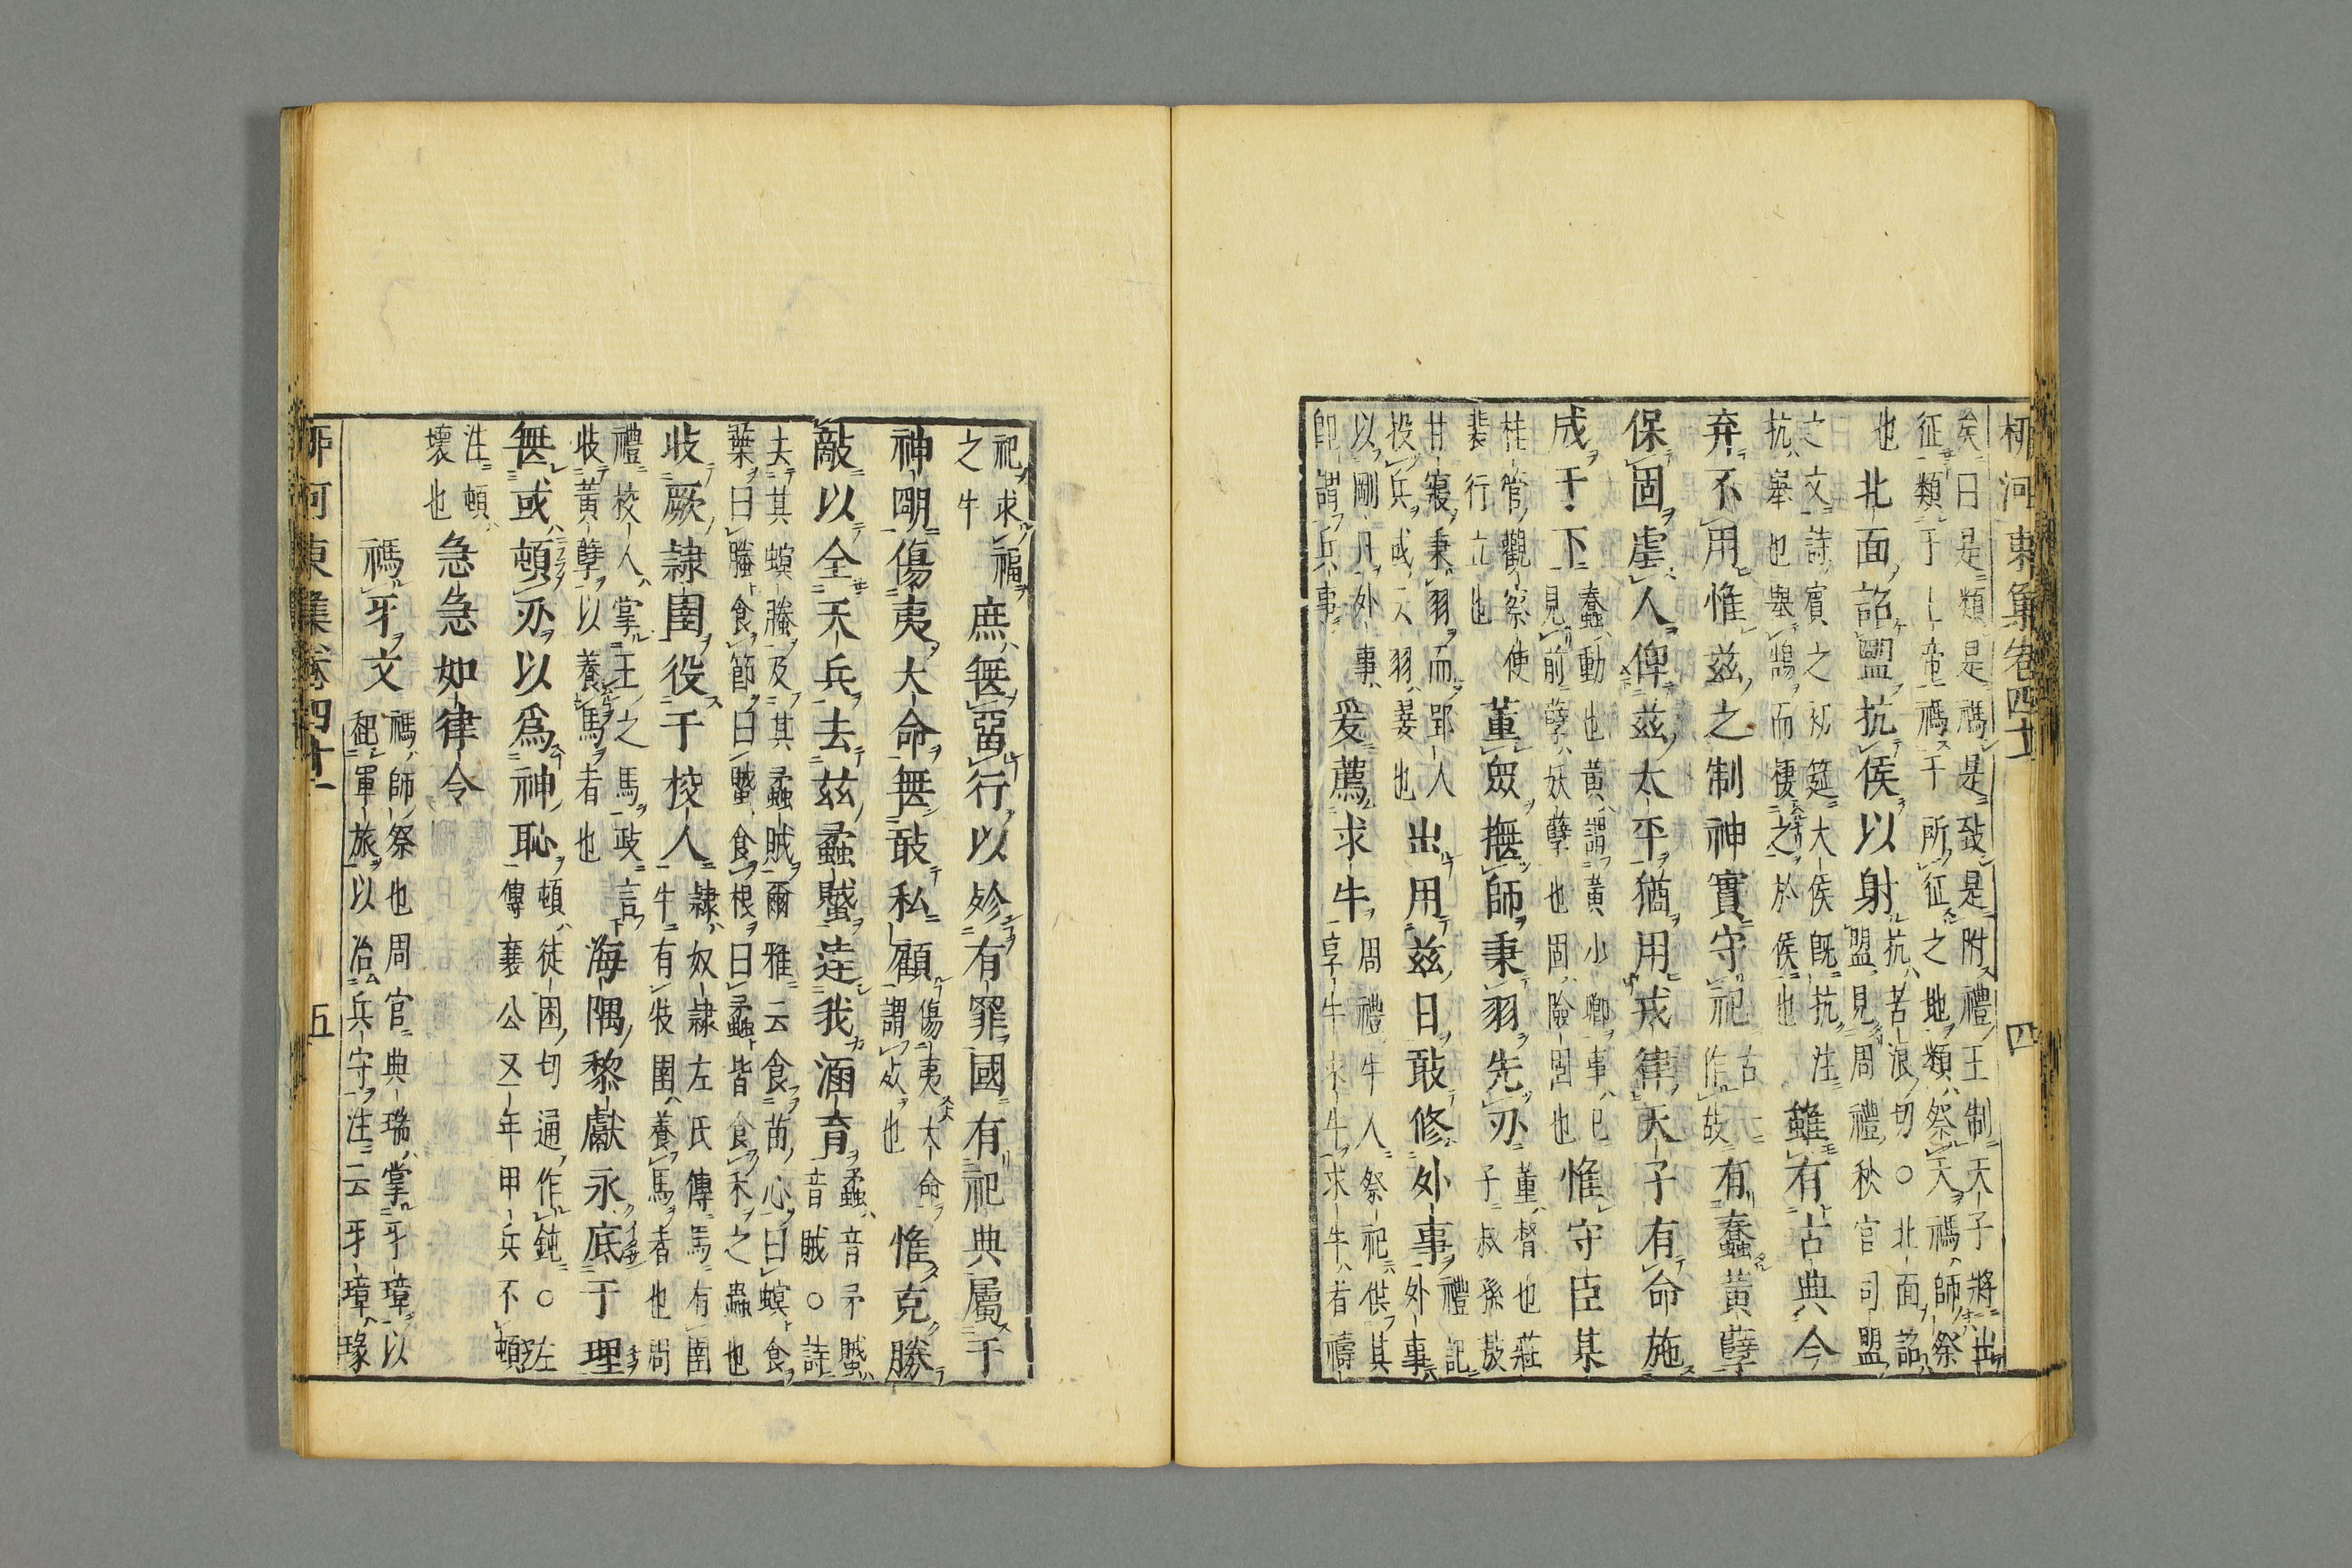 柳河東集卷四十一 四
矣曰是類是禡是致是附禮王制天子將出
征類于上帝禡于所征之地類祭天禡師祭
也北面詔盟抗侯以射
抗苦浪切○北面詔
盟見周禮秋官司盟
之文詩賓之初筵大侯旣抗注
抗舉也舉鵠而棲之於侯也
雖有古典今
弃不用惟兹之制神實守祀
古一
作故
有蠢黃孽
保固虐人俾兹太平猶用戎律天子有命施
成于下
蠢動也黃謂黃小卿事已
見前孽妖孽也固險固也
惟守臣某
桂管觀察使
裴行立也
董衆撫師秉羽先刃
董督也莊
子叔孫敖
甘寢秉羽而郢人
投兵或云羽翣也
出用兹日敢修外事
禮記
外事
以剛日外事
卽謂兵事
爰薦求牛
周禮牛人祭祀供其
享牛求牛求牛者禱
祀求福
之牛
庶無畱行以殄有罪國有祀典屬于
神明傷夷大命無敢私顧
傷夷大命
謂死也
惟克勝
敵以全天兵去兹蟊蠈達我涵育
蟊音矛蠈
音賊○詩
去其螟螣及其蟊賊爾雅云食苗心曰螟食
葉曰螣食節曰蠈食根曰蟊皆食禾之蟲也
收厥隷圉役于校人
隷奴隷左氏傳馬有圉
牛有牧圉養馬者也周
禮校人掌王之馬政言
收黃孽以養馬者也
海隅黎獻永底于理
無或頓刃以爲神恥
頓徒困切通作鈍○左
傳襄公又年甲兵不頓
注頓
壞也
急急如律令
禡牙文
禡師祭也周官典瑞掌牙璋以
起軍旅以治兵守注云牙璋瑑
柳河東集卷四十一 五